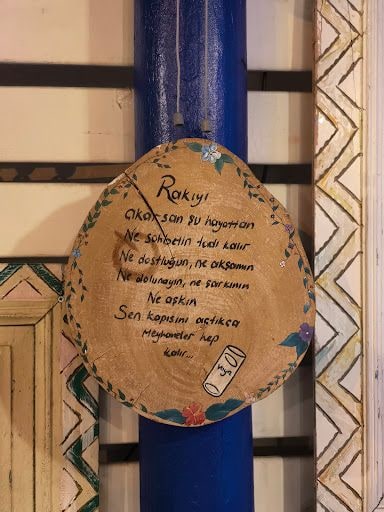 Rakıyı
Çıkarsan şu hayattan
Ne sohbetin tadı kalır
Ne dostluğun, ne akşamın
Ne dolunayın, ne şarkının
Ne aşkın
Sen kapısını açtıkça
Meyhaneler hep
kalır...